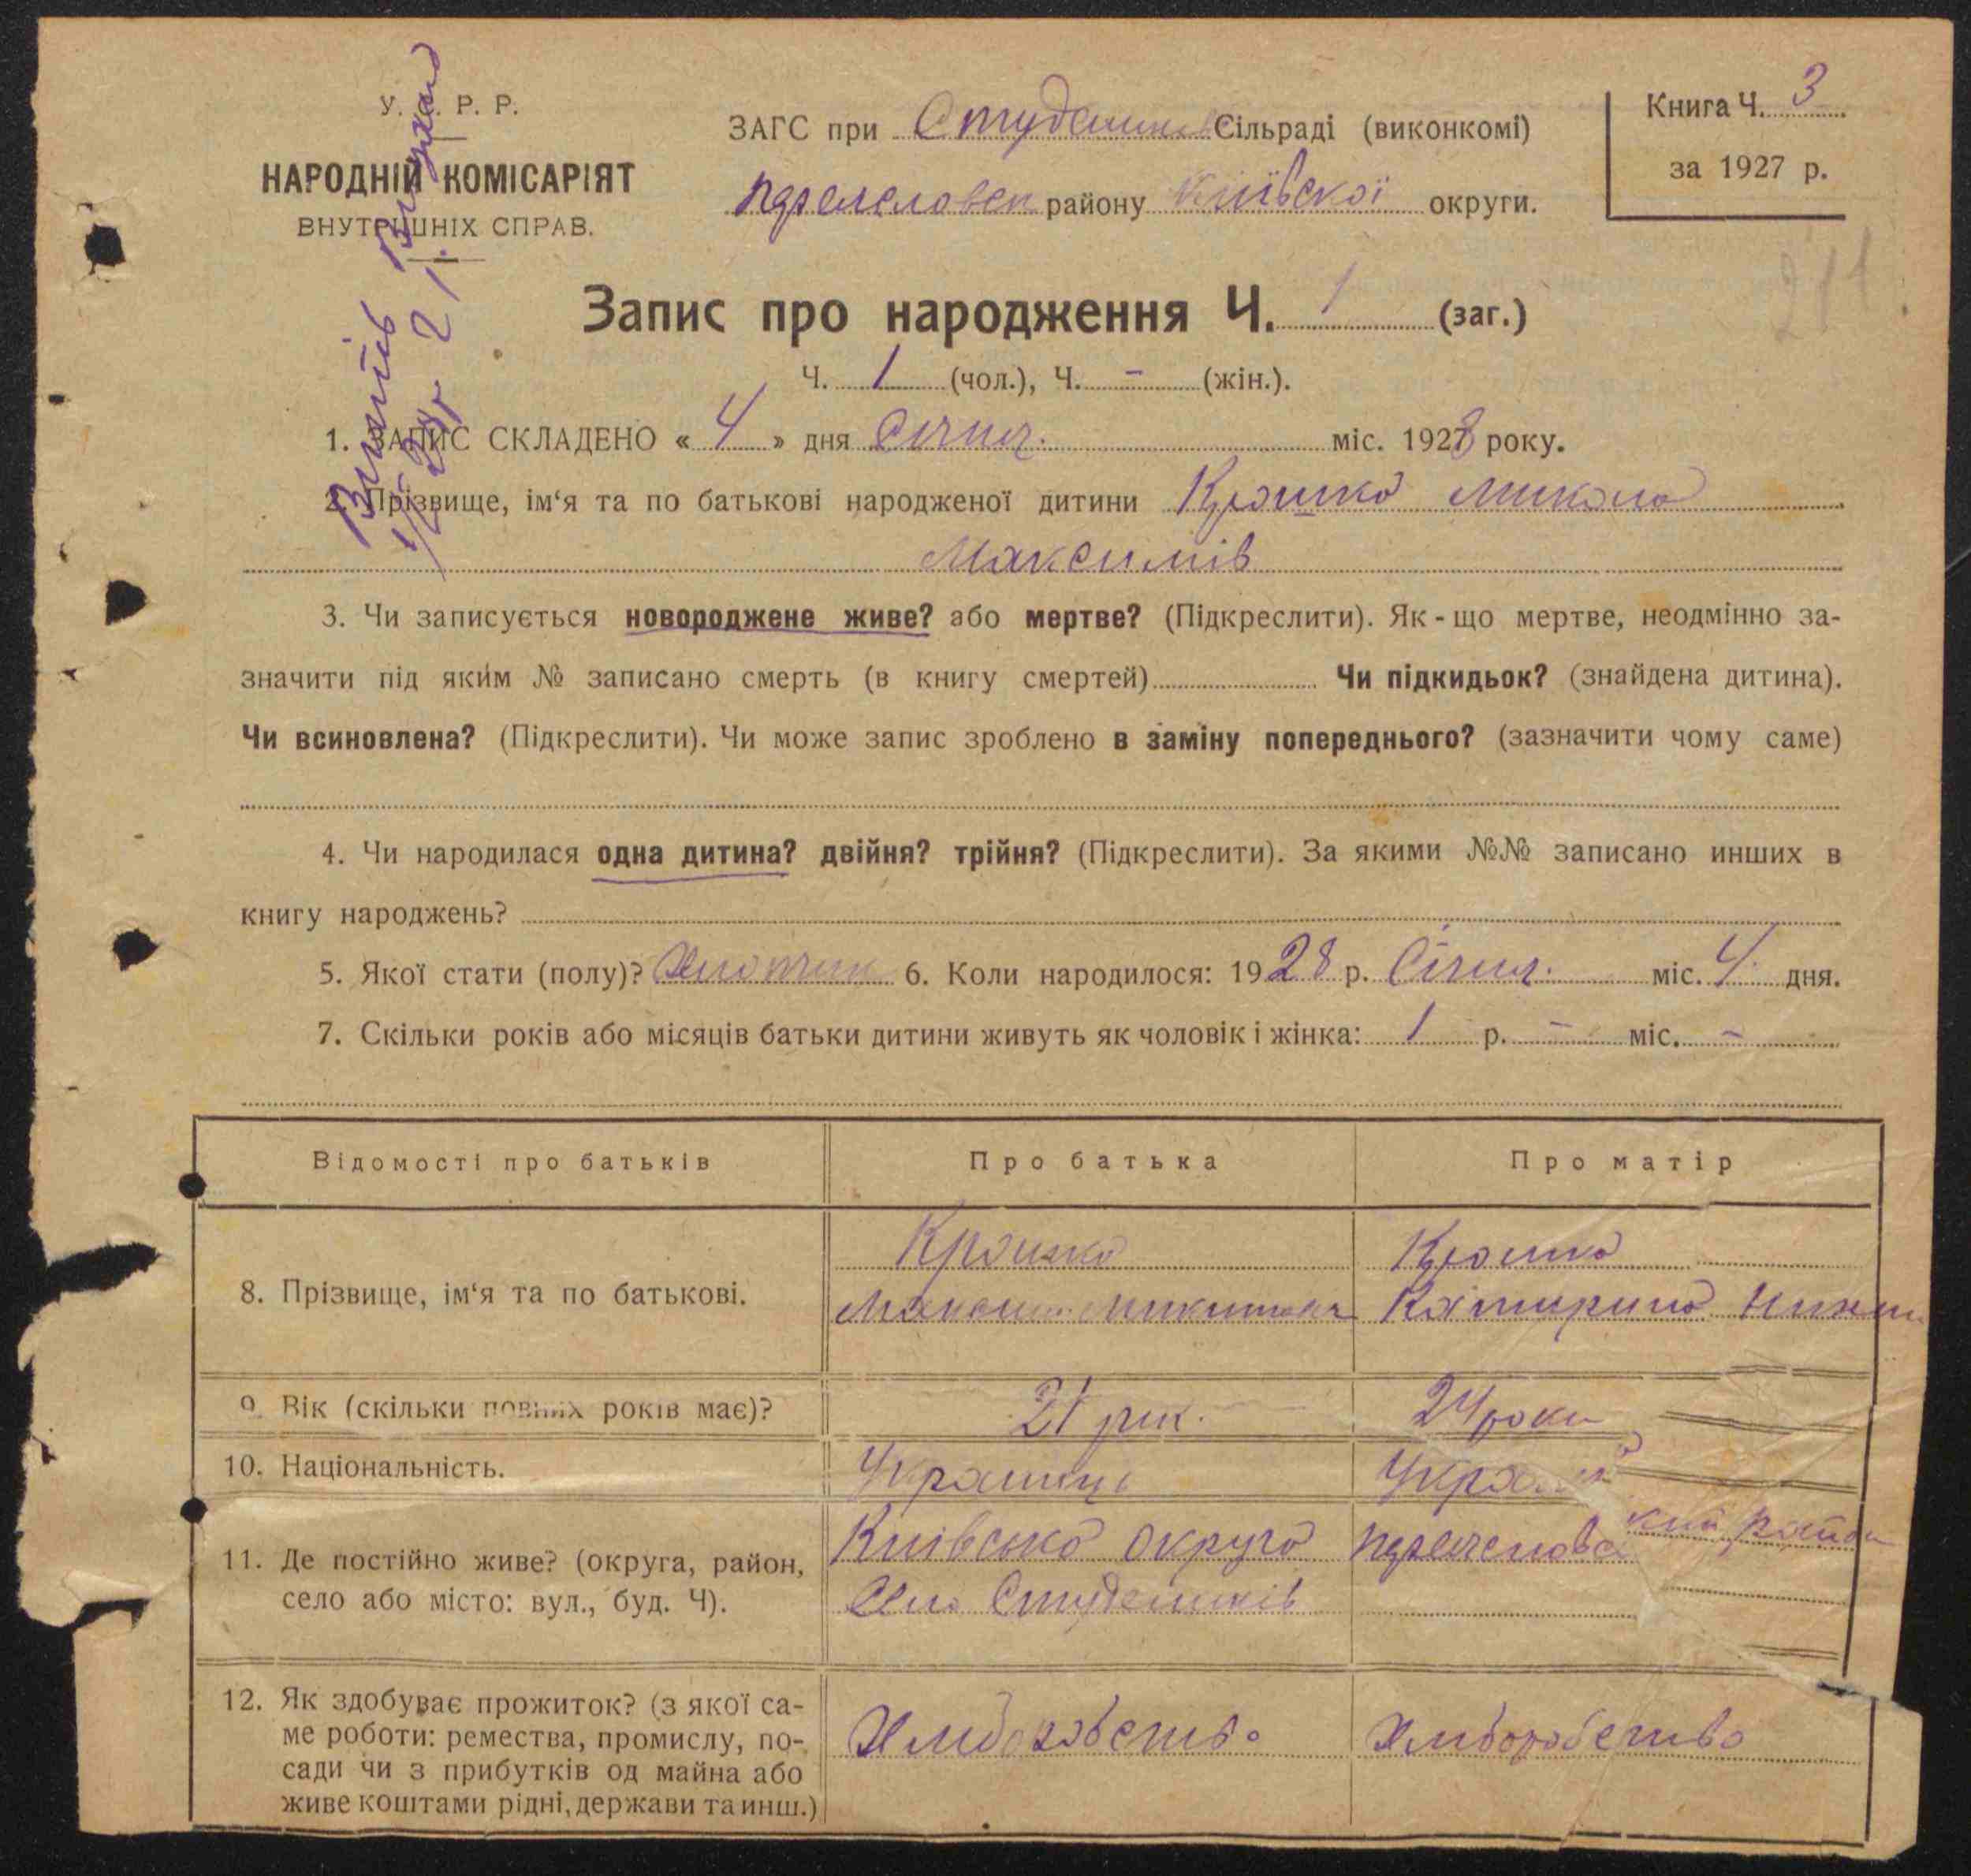 У. Р. Р.
НАРОДНІЙ КОМІСАРІЯТ
ВНУТРІШНІХ СПРАВ.
ЗАГС при Сільраді (виконкомі)
району Київскої округи.
Книга Ч. 3
за 1927 р.
211
Запис про народження Ч. 1 (заг.)
Ч. 1 (чол.), Ч. - (жін.).
1. ЗАПИС СКЛАДЕНО « 4 » дня Січня. міс. 1928 року.
2. Прізвище, ім‘я та по батькові народженої дитини Крошка Микола
Максимів
3. Чи записується новороджене живе? або мертве? (Підкреслити). Як-що мертве, неодмінно за-
значити під яким № записано смерть (в книгу смертей) Чи підкидьок? (знайдена дитина).
Чи всиновлена? (Підкреслити). Чи може запис зроблено в заміну попереднього? (зазначити чому саме)
4. Чи народилася одна дитина? двійня? трійня? (Підкреслити). За якими №№ записано инших в
книгу народжень?
5. Якої стати (полу)? Хлопчик 6. Коли народилося: 1928 р. Січня. міс. 4 дня.
7. Скільки років або місяців батьки дитини живуть як чоловік і жінка: 1 р. - міс. -
Відомості про батьків Про батька Про матір
8. Прізвище, ім‘я та по батькові.
Крошка
Максим Микитович
Крошка
Катирина
9. Вік (скільки повних років має)? 21 рік. 24 роки
10. Національність. Українець
11. Де постійно живе? (округа, район,
село або місто: вул., буд. Ч).
Київська округа
Село Студеників
район
12. Як здобуває прожиток? (з якої са-
ме роботи: ремества, промислу, по-
сади чи з прибутків од майна або
живе коштами рідні, держави та инш.)
Хлиборобство
Хлиборобство